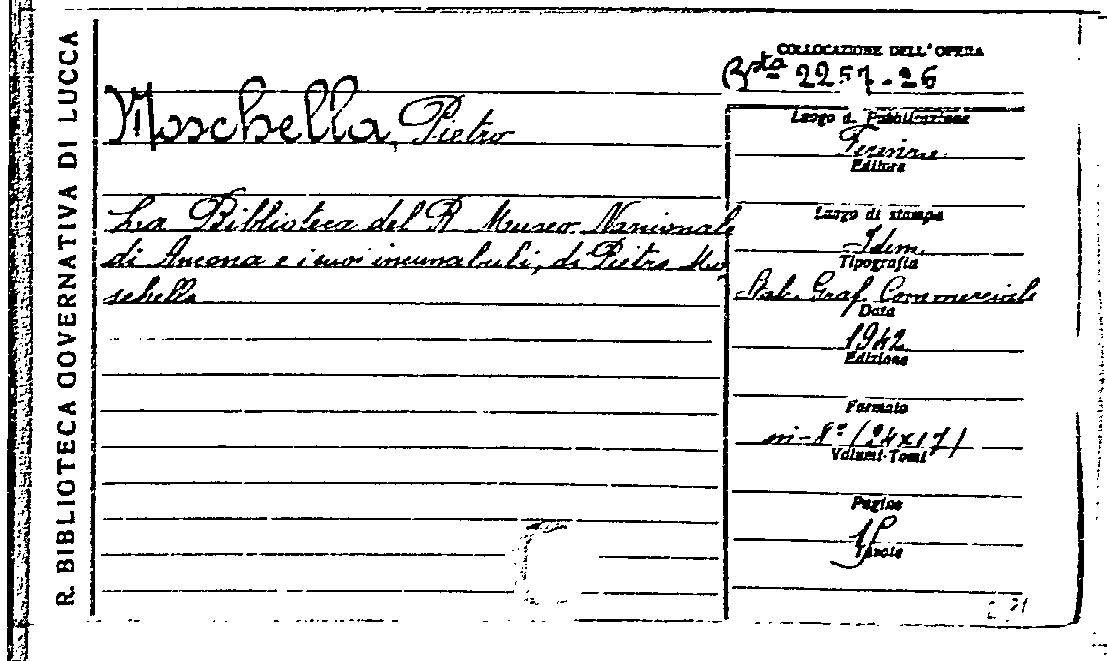 R. BIBLIOTECA GOVERNATIVA DI LUCCA
COLLOCAZIONE DELL'OPERA
Bsta 2257.26
Moschella, Pietro
Luogo di Pubblicazione
Firenze
Editore
La Biblioteca del R. Museo Nazionale
di Ancona e i suoi incunabuli, di Pietro Mo
schella
Luogo di stampa
Idem
Tipografia
Stab. Graf. Commerciale
Data
1942
Edizione
Formato
in-8° (24x17)
Volumi-Tomi
Pagine
Tavole